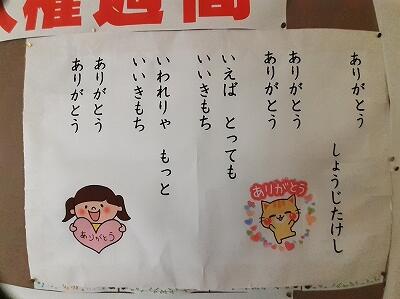 権週間
ありがとう
しょうじたけし
ありがとう
ありがとう
いえば とっても
いいきもち
いわれりゃ もっと
いいきもち
ありがとう
ありがとう
ありがとう
ありがとう